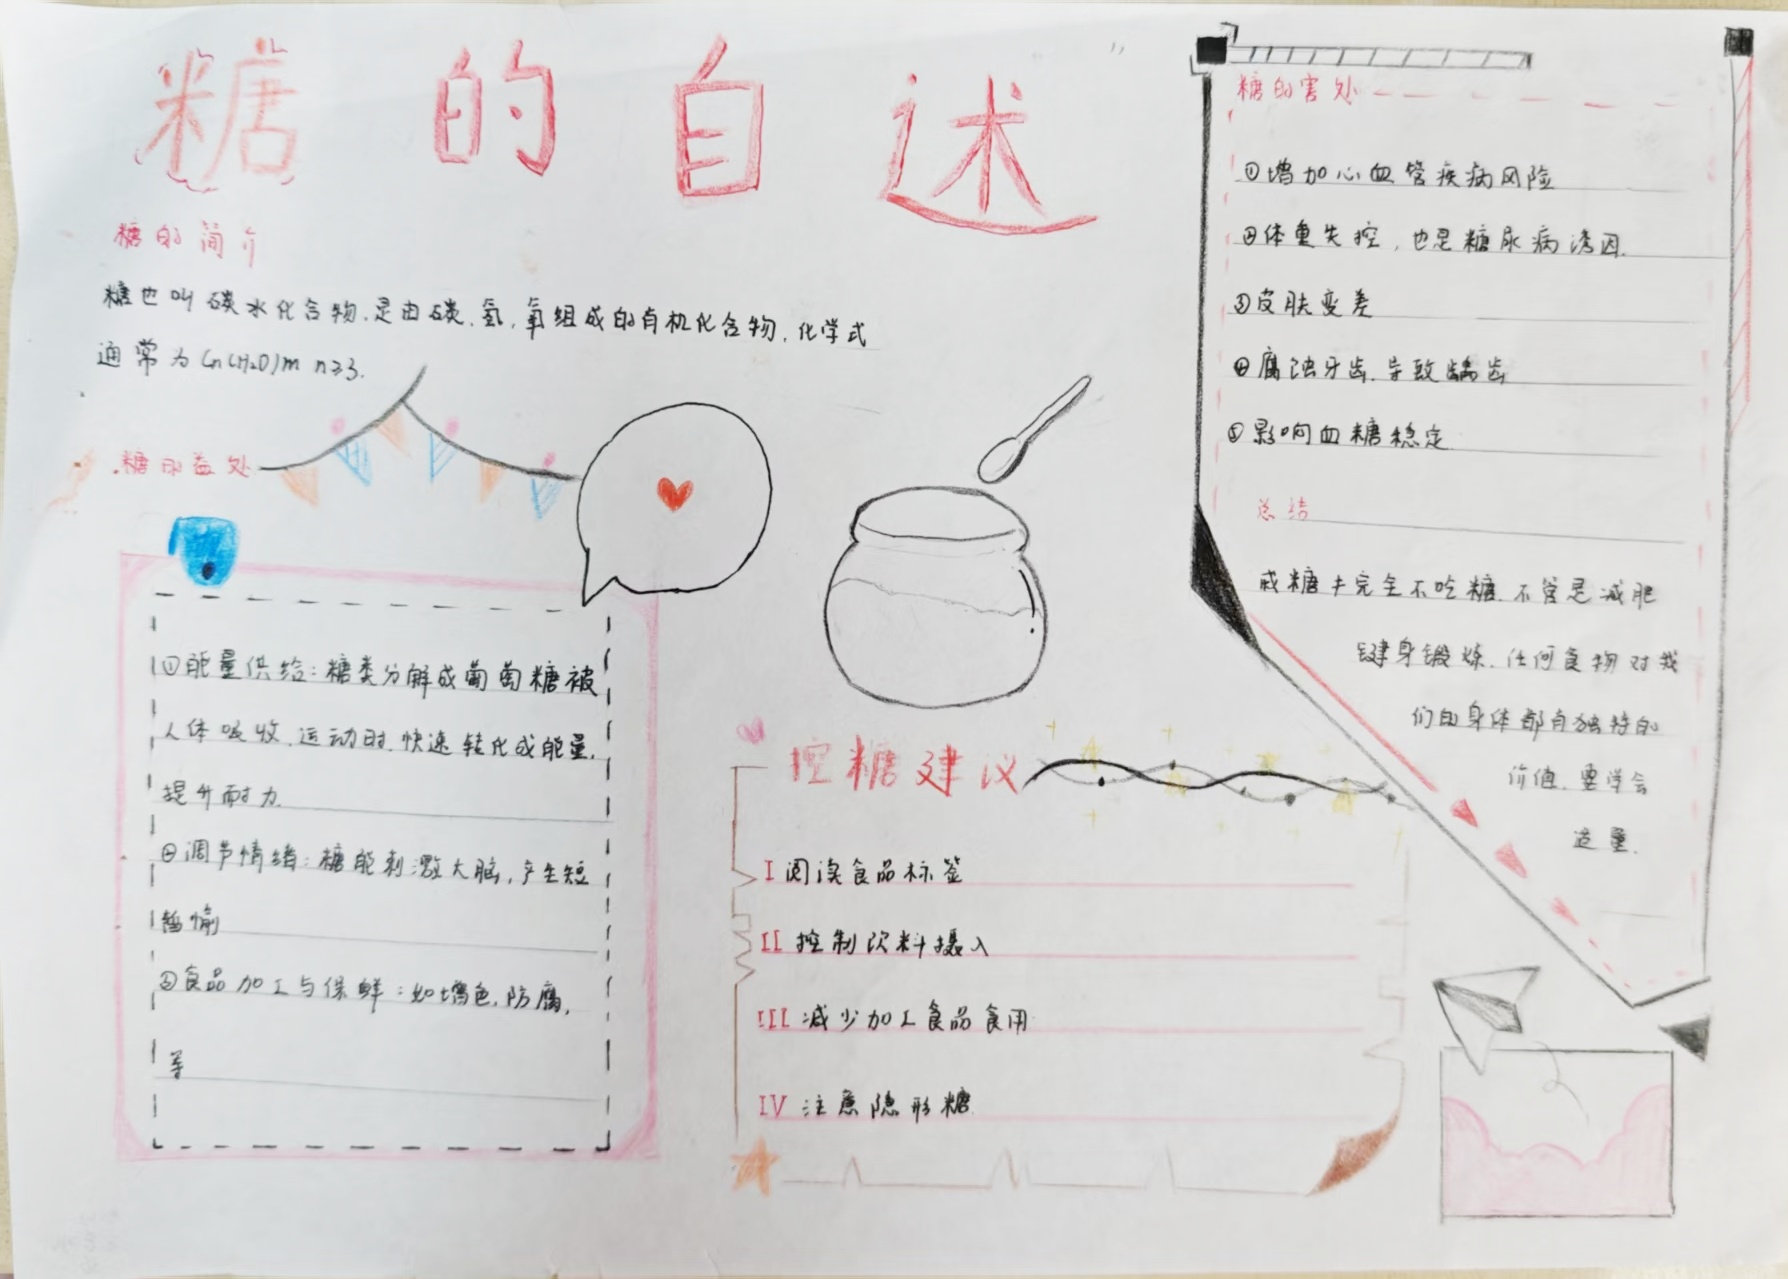 糖的自述
糖的简介
糖也叫碳水化合物,是由碳、氢,氧组成的有机化合物,化学式
通常为Cn(H₂O)m n≥3.
糖的益处
①能量供给:糖类分解成葡萄糖被
人体吸收、运动时、快速转化成能量,
提升耐力
②调节情绪:糖能刺激大脑,产生短
暂愉
③食品加工与保鲜:如增色,防腐,
等
控糖建议
I 阅读食品标签
II 控制饮料摄入
III 减少加工食品食用
IV 注意隐形糖
糖的害处
①增加心血管疾病风险
②体重失控,也是糖尿病诱因.
③皮肤变差
④腐蚀牙齿、导致龋齿
⑤影响血糖稳定
总结
戒糖≠完全不吃糖、不管是减肥
健身锻炼、任何食物对我
们的身体都有独特的
价值、要学会
适量.